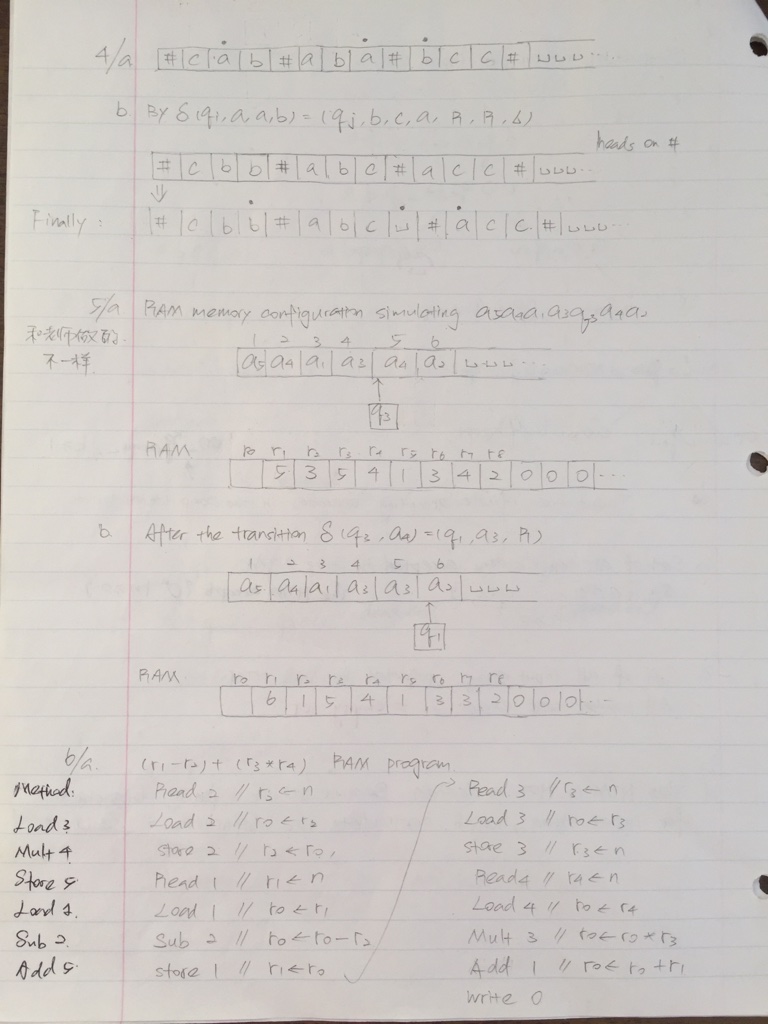 4/a # c ȧ b # a b ȧ # ḃ c c # ␣␣␣...
b By δ(qi, a, a, b) = (qj, b, c, a, R, R, S)
heads on #
# c b b # a b c # a c c # ␣␣␣...
⇓
Finally: # c b ḃ # a b c ␣̇ # ȧ c c # ␣␣␣...
5/a RAM memory configuration simulating a5a4a1a3q3a4a2
和老师做的
不一样
1 2 3 4 5 6
a5 a4 a1 a3 a4 a2 ␣␣␣...
↑
q3
RAM r0 r1 r2 r3 r4 r5 r6 r7 r8
5 3 5 4 1 3 4 2 0 0 0 ...
b. After the transition δ(q3, a4) = (q1, a3, R)
1 2 3 4 5 6
a5 a4 a1 a3 a3 a2 ␣␣␣
↑
q1
RAM r0 r1 r2 r3 r4 r5 r6 r7 r8
6 1 5 4 1 3 3 2 0 0 0 ...
6/a. (r1-r2)+(r3*r4) RAM program
Method:
Load 3
Mult 4
Store 5
Load 1.
Sub 2.
Add 5
Read 2 // r2 ← n
Load 2 // r0 ← r2
store 2 // r2 ← r0,
Read 1 // r1 ← n
Load 1 // r0 ← r1
Sub 2 // r0 ← r0-r2
store 1 // r1 ← r0
Read 3 // r3 ← n
Load 3 // r0 ← r3
store 3 // r3 ← n
Read 4 // r4 ← n
Load 4 // r0 ← r4
Mult 3 // r0 ← r0*r3
Add 1 // r0 ← r0+r1
write 0